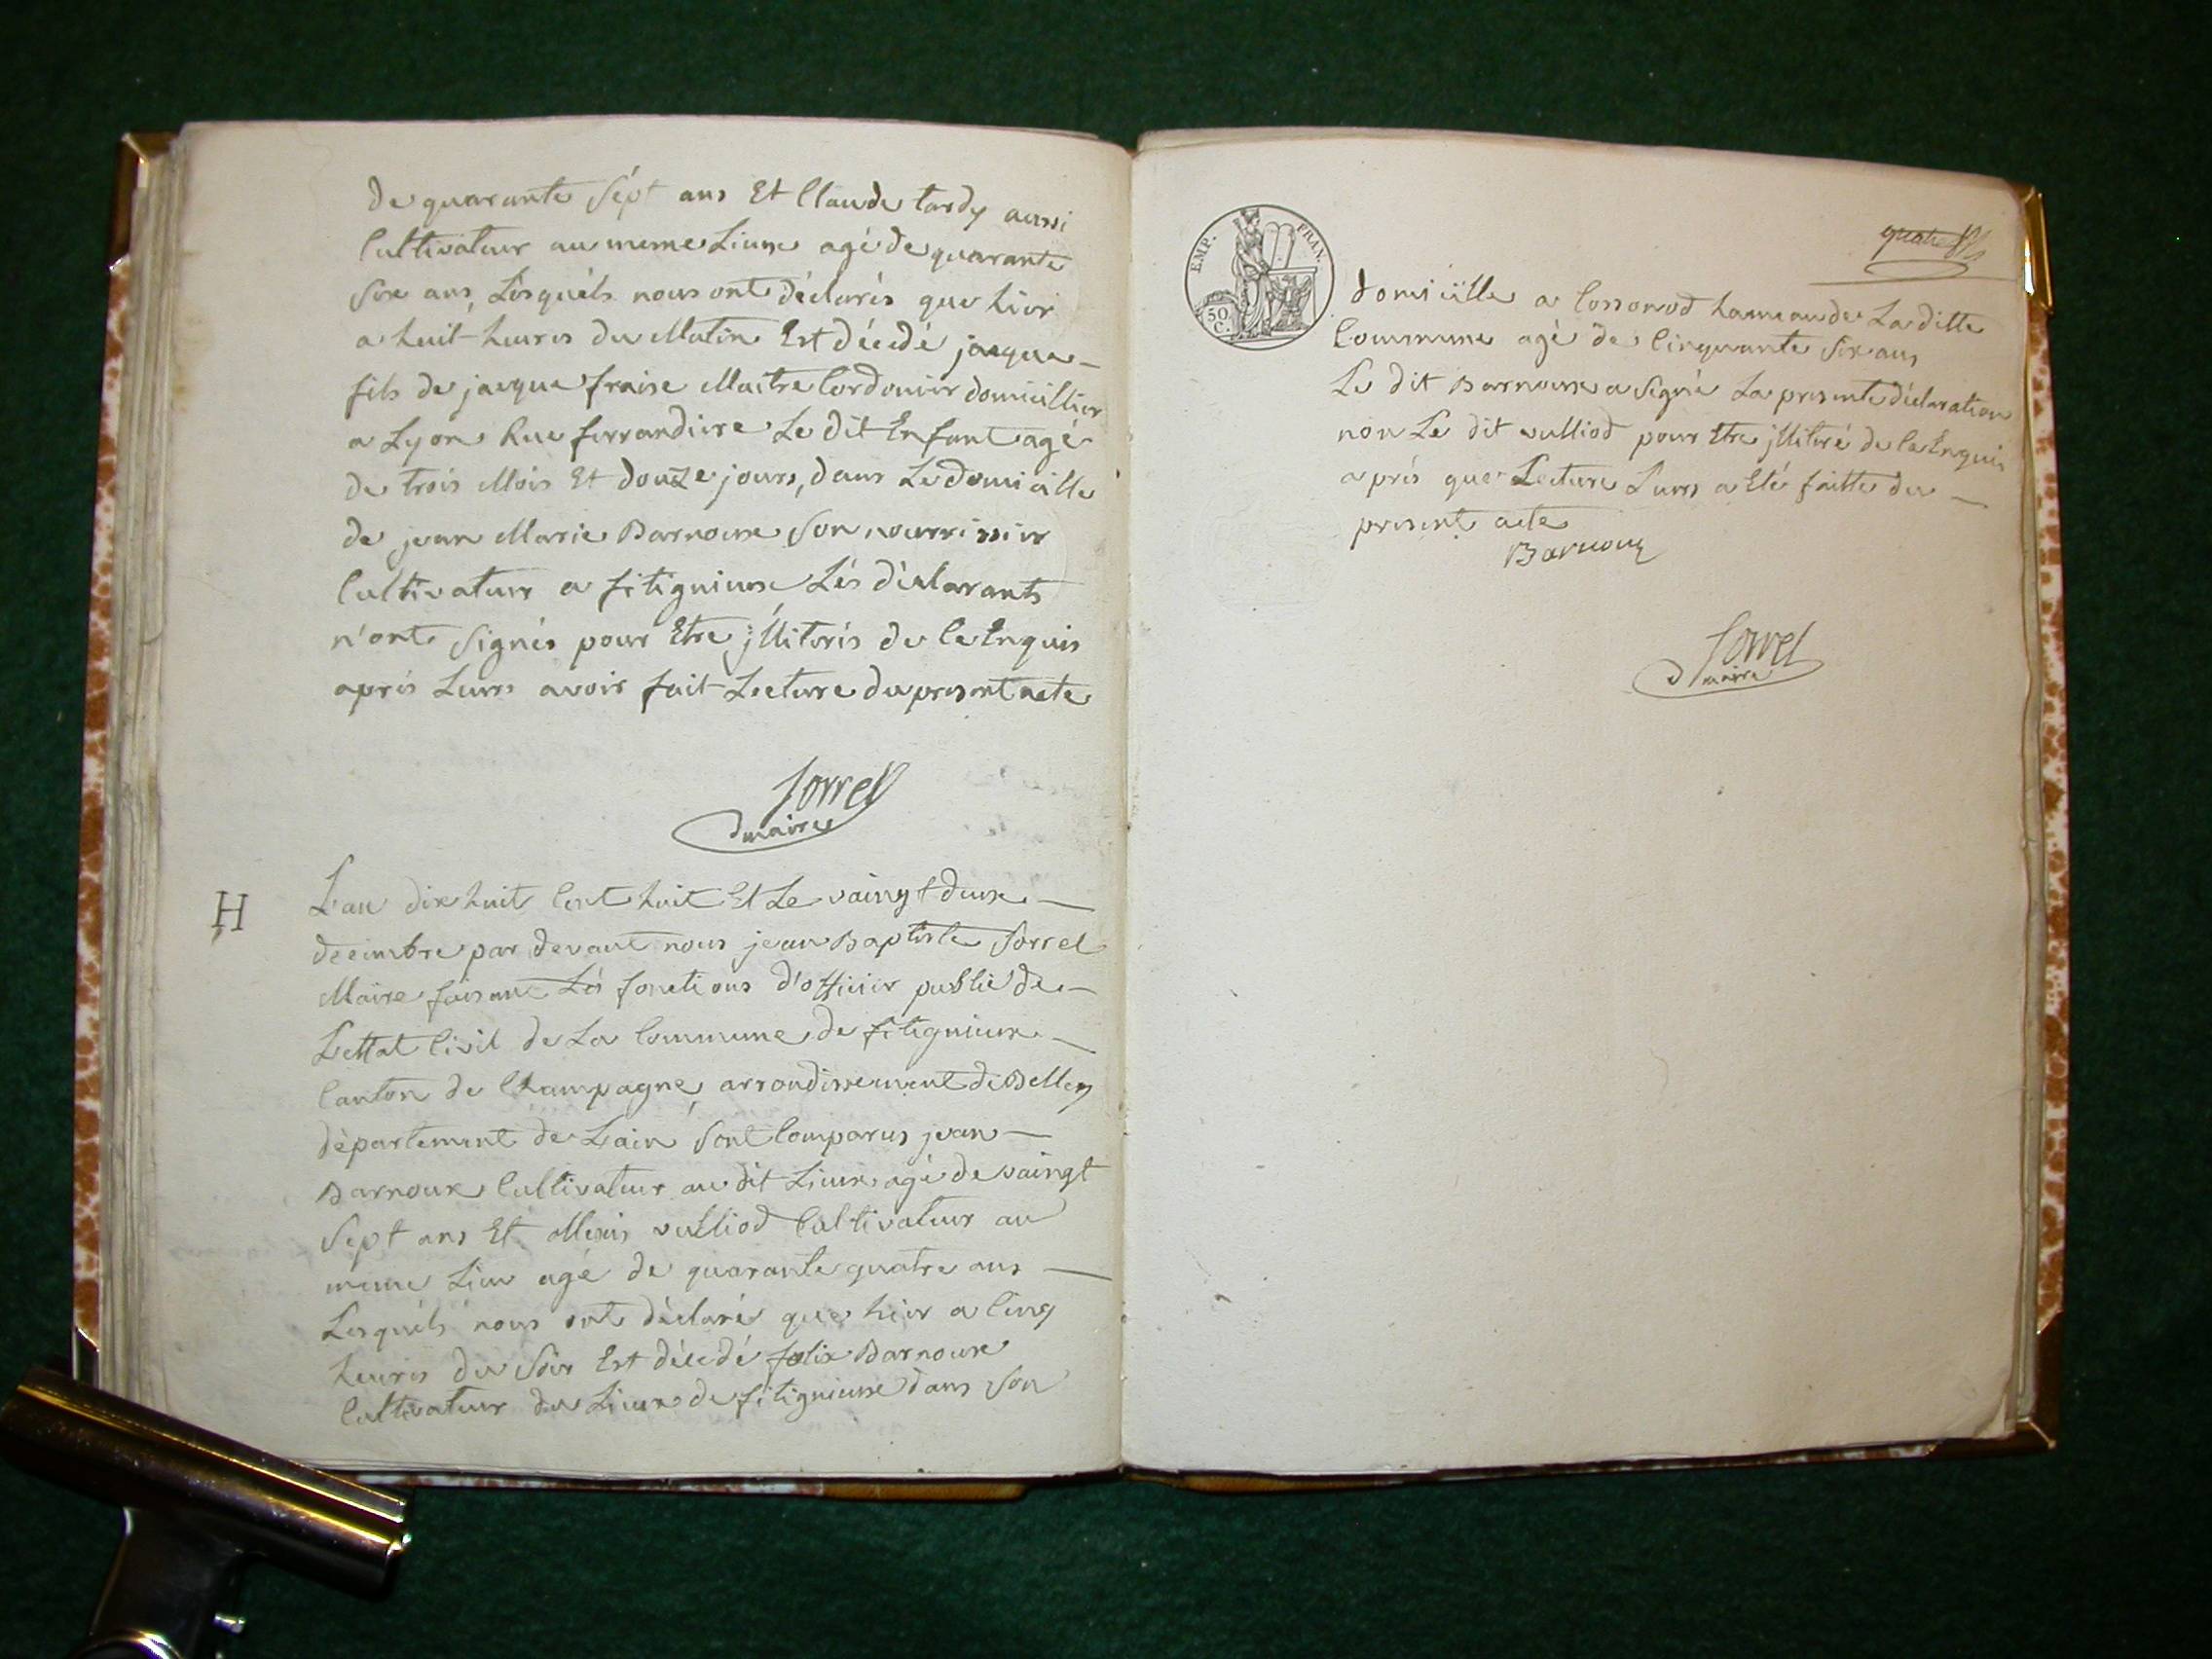 de quarante sépt ans Et Claude tardy aussi
Cultivateur au meme Lieux agé de quarante
six ans, Lésquéls nous ont déclarés que hier
a huit heures du Matin Est décédé jacque
fils de jacque fraise Maitre Cordonier domicillier
a Lyon Rue ferrandiere Le dit Enfant agé
de trois Mois Et douze jours, dans Le domicille
de jean Marie Barnoux son nourrissier
Cultivateur a fitignieux Lés déclarants
n'ont signés pour Etre jlliterés de ce Enquis
aprés Leurs avoir fait Lecture du present acte
Sorrel
maire
H
L'an dix huit Cent huit Et Le vaingt deux
decembre par devant nous jean Baptiste Sorrel
Maire faisant Lés fonctions d'officier public de
L'ettat Civil de La Commune de fitignieux
Canton de Champagne, arrondissement de Belley
département de L'ain sont Comparus jean
Barnoux Cultivateur au dit Lieux agé de vaingt
sept ans Et Alexis vulliod Cultivateur au
meme Lieu agé de quarante quatre ans
Lesquéls nous ont déclaré que hier a Cinq
heures du soir Est décédé felix Barnoux
Cultivateur du Lieux de fitignieux dans son
EMP. FRAN.
50
C.
quatre
domicille a Cossonod hameau de La ditte
Commune agé de Cinquante six ans
Le dit Barnoux a signé La presente déclaration
non Le dit vulliod pour Etre jlliteré de ce Enquis
aprés que Lecture Leurs a Eté faitte du
present acte
Barnoux
Sorrel
maire